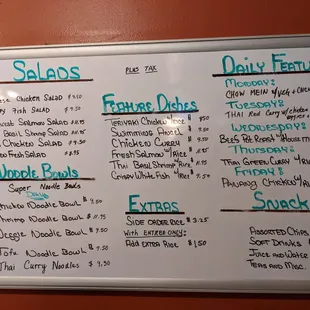 SALADS
PLUS TAX
Chicken Salad $ 9.50
Fish Salad $ 9.50
Salmon Salad
Basil Shrimp Salad
Chicken Salad $ 9.50
Fresh Salad
Noodle Bowls
Super Noodle Bowls
Chicken Noodle Bowl $ 9.50
Shrimp Noodle Bowl $ 11.95
Veggie Noodle Bowl $ 9.50
Tofu Noodle Bowl $ 9.50
Thai Curry Noodles $ 9.50
Feature Dishes
Teriyaki Chicken/Rice
Swimming Angel
Chicken Curry
Fresh Salmon w/Rice
Thai Basil Shrimp/Rice
Crispy White Fish w/
Extras
Side Order Rice $ 3.25
With Entree Only:
Add Extra Rice $ 1.50
Daily Featu
Monday:
Chow Mein w/Veg + Chic
Tuesday:
Thai Red Curry w/chicken
Wednesday:
Thursday:
Thai Green Curry w/Ri
Friday:
Panang Chicken w/R
Snack
Assorted Chips
Soft Drinks
Juice and Water
Teas and Misc.